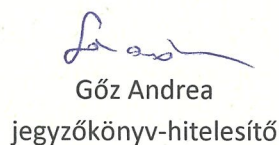 Gőz Andrea
jegyzőkönyv-hitelesítő